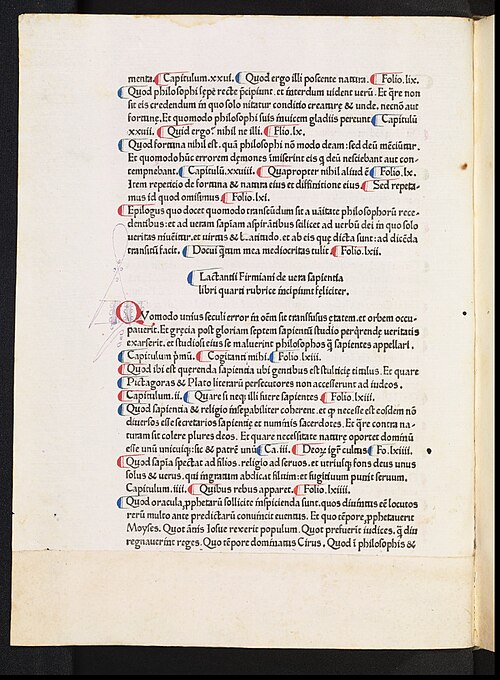 menta. Capitulum.xxvi. Quod ergo illi poscente natura. Folio.lix.
Quod philosophi sępe recte p̄cipiunt. et interdum uident uerū. Et qͥre non
sit eis credendum in quo solo nitatur conditio creaturę & unde. necnō aut
fortunę. Et quomodo philosophi suis inuicem gladiis pereunt Capitulū
xxvii. Quid ergo? nihil ne illi. Flio.lx.
Quod fortuna nihil est. quā philosophi nō modo deam: sed deū mēciūtur.
Et quomodo hūc errorem dęmones īmiserint eis q deū nesciebant aut con-
tempnebant. Capitulū.xxviii. Quapropter nihil aliud ē Folio.lx.
Item repeticio de fortuna & natura eius et diffinitione eius. Sed repeta-
mus id quod omisimus Folio.lxi.
Epilogus quo docet quomodo transeūdum sit a uāitate philosophorū rece-
dentibus: et ad ueram sapiam aspirātibus scilicet ad uerbū dei in quo solo
ueritas īuēitur. et uirtus & b.atitudo. et ab eis quę dicta sunt: ad dicēda
transitū facit. Docui quātum mea mediocritas tulit Folio.lxii.
Lactantii Firmiani de uera sapientia
libri quarti rubrice incipiunt feliciter.
QVomodo unius seculi error in oēm sit transfusus ętatem. et orbem occu-
pauerit. Et gręcia post gloriam septem sapientū studio perqͥrendę ueritatis
exarserit. et studiosi eius se maluerint philosophos q̄ sapientes appellari.
Capitulum pͥmū. Cogitanti mihi. Folio.lxiii.
Quod ibi est querenda sapientia ubi gentibus est stulticię titulus. Et quare
Pictagoras & Plato literarū persecutores non accesserunt ad iudeos.
Capitulum.ii. Quare si neq illi fuere sapientes Folio.lxiii.
Quod sapientia & religio īnsepabiliter coherent. et q necesse est eosdem nō
diuersos esse secretarios sapientię et numinis sacerdotes. Et qͥre contra na-
turam sit colere plures deos. Et quare necessitate naturę oportet dominū
esse unū unicuiq: sic & patrē unū Ca.iii. Deoꝝ igͭ cultus Fo.lxiiii.
Quod sapia spectat ad filios. religio ad seruos. et utriusq fons deus unus
solus & uerus. qui ingratum abdicat filium: et fugitiuum punit seruum.
Capitulum.iiii. Quibus rebus apparet. Folio.lxiiii.
Quod oracula ꝓphetarū sollicite inspicienda sunt. quos diuinitus eē locutos
rerū multo ante predictarū conuincit euentus. Et quo tēpore ꝓphetauerit
Moyses. Quot ānis Iosue rexerit populum. Quot prefuerīt iudices. q̄ diu
regnauerint reges. Quo tēpore dominatus Cirus. Quod ī philosophis &